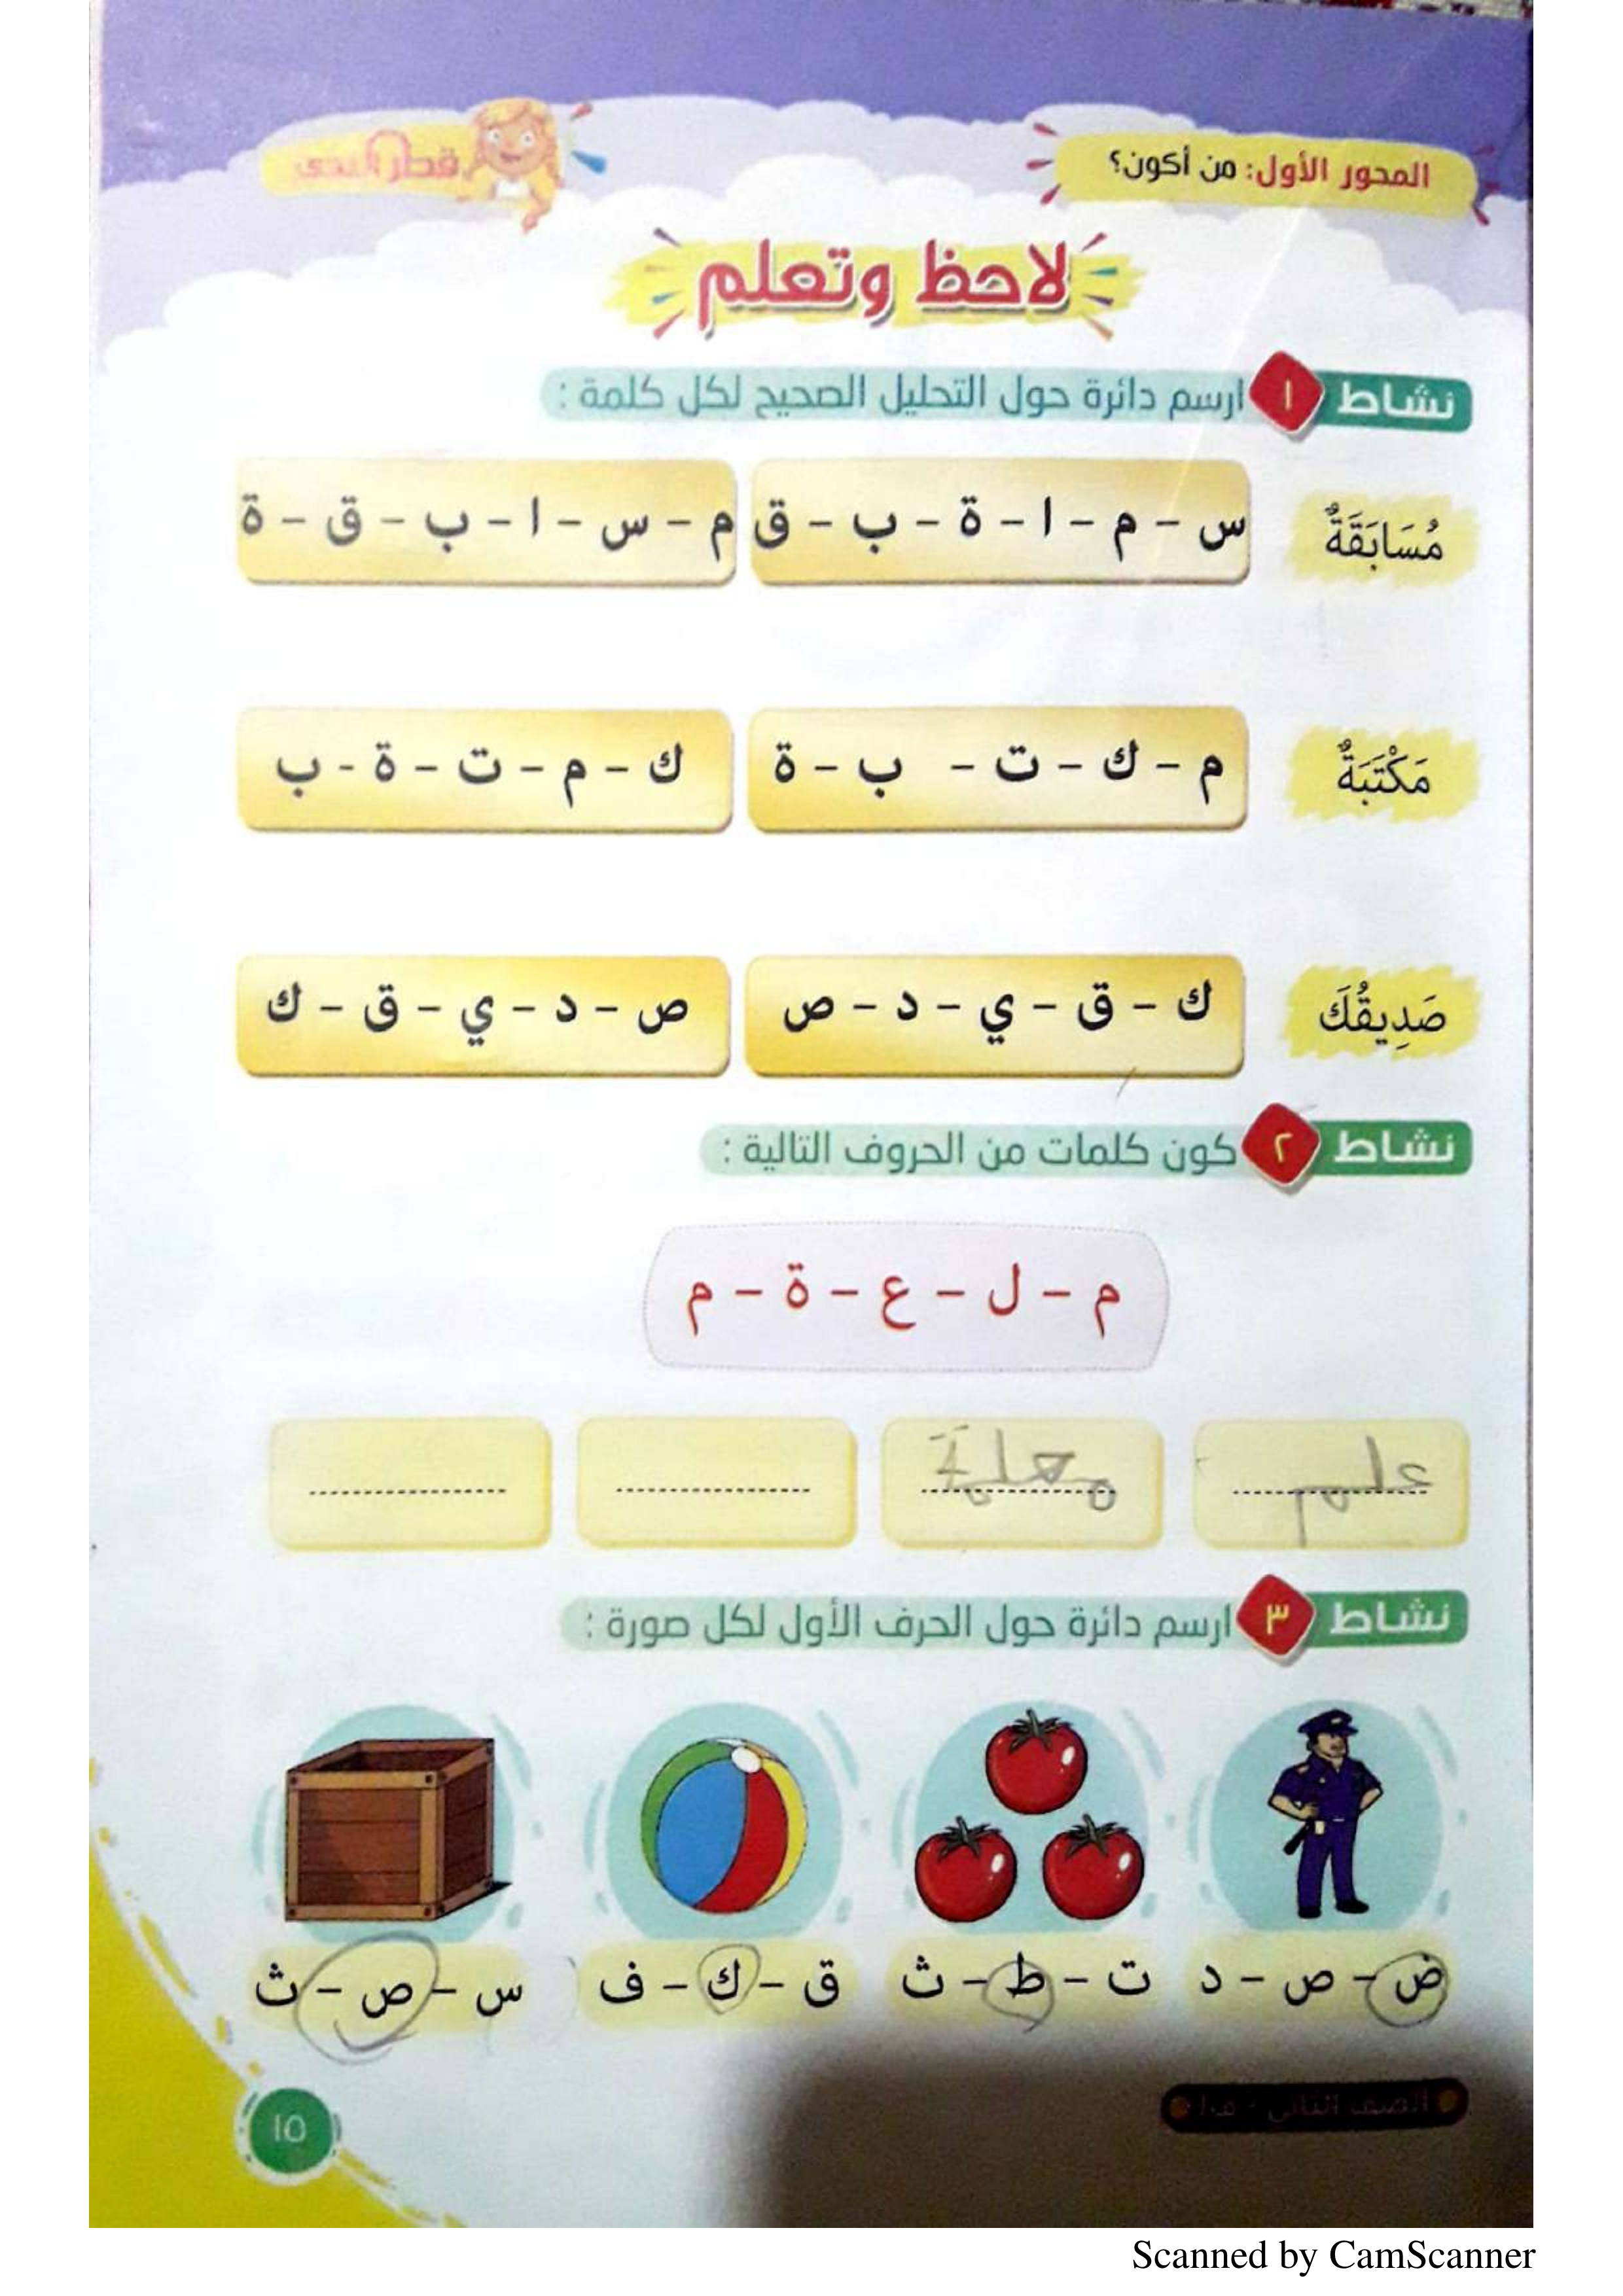 المحور الأول: من أكون؟
قطر الندى
لاحظ وتعلم
نشاط ١ ارسم دائرة حول التحليل الصحيح لكل كلمة :
مُسَابَقَةٌ
س - م - ا - ة - ب - ق
م - س - ا - ب - ق - ة
مَكْتَبَةٌ
م - ك - ت - ب - ة
ك - م - ت - ة - ب
صَدِيقُكَ
ك - ق - ي - د - ص
ص - د - ي - ق - ك
نشاط ٢ كون كلمات من الحروف التالية :
م - ل - ع - ة - م
علم
معلمة
نشاط ٣ ارسم دائرة حول الحرف الأول لكل صورة :
ض - ص - د
ت - ط - ث
ق - ك - ف
س - ص - ث
الصف الثاني - ف١
١٥
Scanned by CamScanner